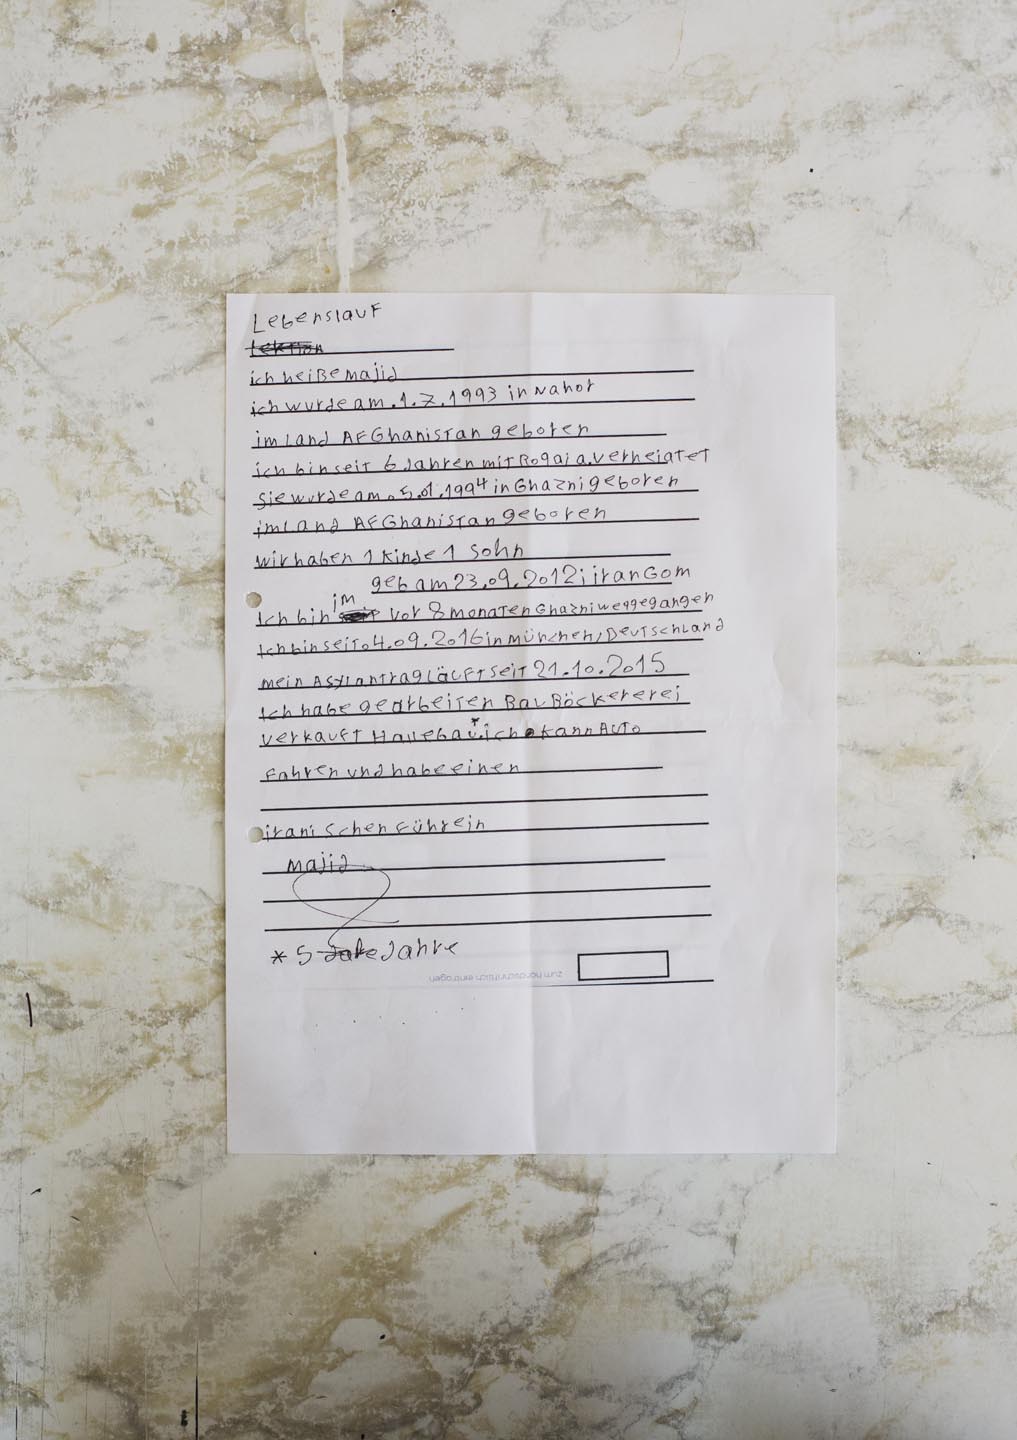 Lebenslauf
Lektion
ich heiße majid
ich wurde am .1.7.1993 in Nahor
im Land AFGhanistan geboren
ich bin seit 6 Jahren mit Roqaia. verheiratet
Sie wurde am .5.01.1994 in Ghazni geboren
im Land AFGhanistan geboren
wir haben 1 Kinde 1 Sohn
geb am 23.09.2012 i iran Gom
Ich bin im vor 8 monaten Ghazni weggegangen
Ich bin seit 04.09.2016 in München, Deutschland
mein Asylantrag läuft seit 21.10.2015
Ich habe gearbeiten Bau Böckererei
verkauft Hallebau.* ich kann Auto
fahren und habe einen
iranischen Führein
majid
* 5 Jahre
zum handschriftlich eintragen